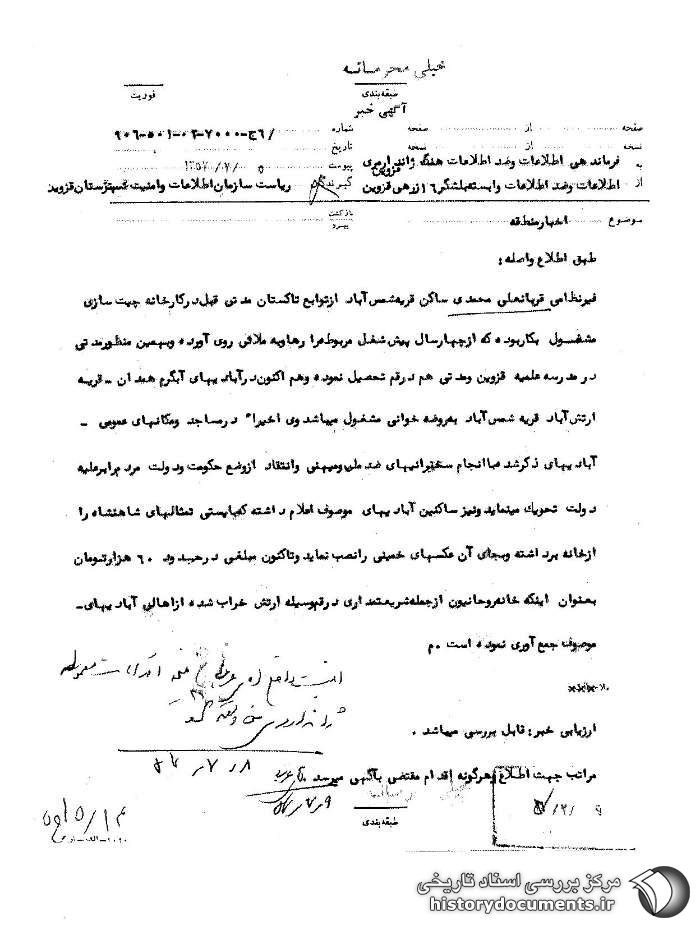 خیلی محرمانه
طبقه‌بندی
فوریت
آگهی خبر
صفحه از صفحه شماره ۹۰۶-۵۰۱-۰۲-۷۰۰۰-ج۶/
نسخه از نسخه تاریخ
به فرماندهی اطلاعات وضد اطلاعات هنگ ژاندارمری قزوین پیوست ۱۳۵۷/۰۷/۰۵
از اطلاعات وضد اطلاعات وابسته بلشگر۱۶زرهی قزوین گیرنده ریاست سازمان اطلاعات وامنیت شهرستان قزوین
موضوع اخبار منطقه بازگشت
پیرو
طبق اطلاع واصله :
غیرنظامی قربانعلی محمدی ساکن قریه شمس آباد ازتوابع تاکستان مدتی قبل درکارخانه چیت سازی
مشغول بکاربوده که ازچهارسال پیش شغل مربوطه را رها وبه ملائی روی آورده وبهمین منظورمدتی
در مدرسه علمیه قزوین ومدتی هم درقم تحصیل نموده وهم اکنون درآبادیهای آبگرم همدان - قریه
ارتش آباد قریه شمس آباد بروضه خوانی مشغول میباشد وی اخیرا" درمساجد ومکانهای عمومی -
آبادیهای ذکرشده با انجام سخنرانیهای ضد ملی ومیهنی وانتقاد ازوضع حکومت ودولت مردم رابرعلیه
دولت تحریک مینماید ونیز ساکنین آبادیهای موصوف اعلام داشته که بایستی تمثالهای شاهنشاه را
ازخانه برداشته وبجای آن عکسهای خمینی رانصب نماید وتاکنون مبلغی درحدود ۶۰ هزارتومان
بعنوان اینکه خانه روحانیون ازجمله شریعتمداری درقم وسیله ارتش خراب شده ازاهالی آبادیهای-
موصوف جمع آوری نموده است .م
ارزیابی خبر: قابل بررسی میباشد .
۵۷/۷/۸
مراتب جهت اطلاع وهرگونه اقدام مقتضی باگهی میرسد
۵۷/۷/۹
طبقه‌بندی
مرکز بررسی اسناد تاریخی
historydocuments.ir